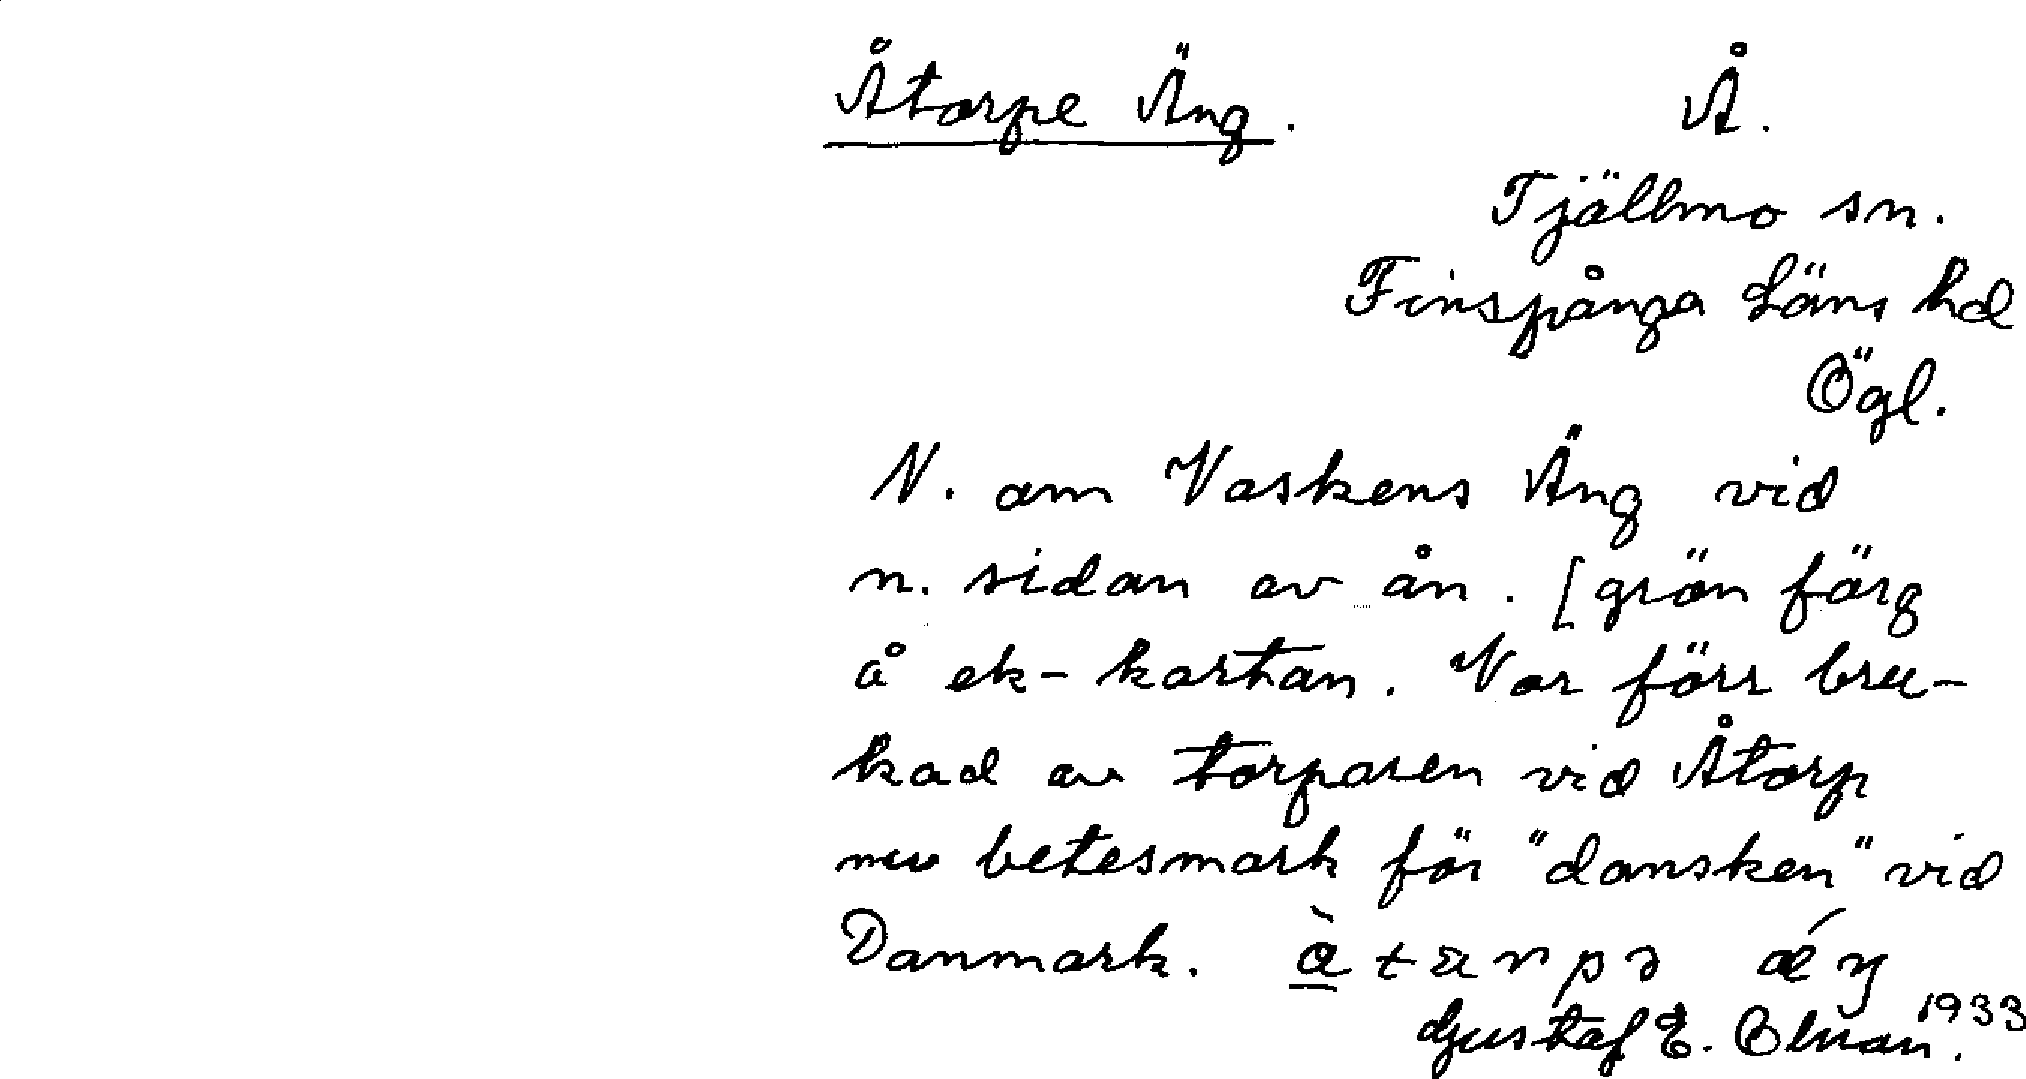 Åtorpe Äng. Å.
Tjällmo sn.
Finspånga Läns hd
Ögl.
N. om Vaskens Äng vid
n. sidan av ån. [grön färg
å ek-kartan. Var förr bru-
kad av torparen vid Åtorp
nu betesmark för "dansken" vid
Danmark.
Gustaf E. 1933